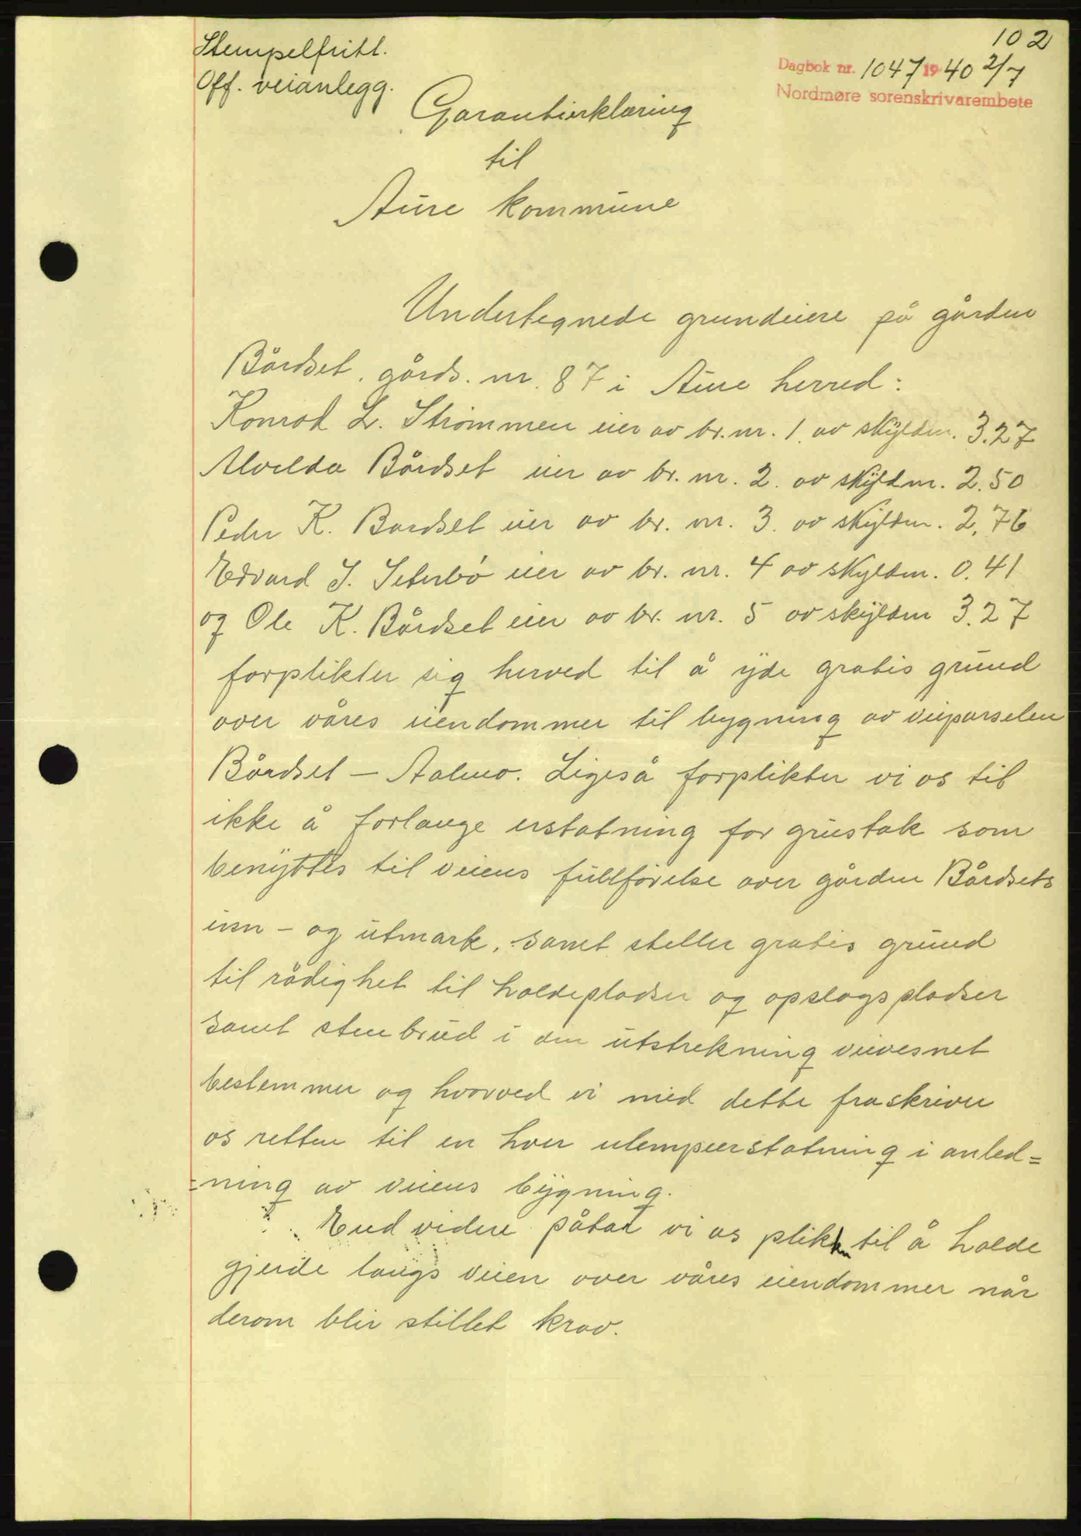 102
Stempelfritt.
Off. veianlegg.
Dagbok nr. 1047 1940 2/7
Nordmøre sorenskrivarembete
Garantierklæring
til
Aure kommune
Undertegnede grundeiere på gården
Bårdset, gårds. nr. 87 i Aure herred:
Konrad L. Strømmen eier av br. nr. 1. av skyldm. 3.27
Alvilda Bårdset eier av br. nr. 2. av skyldm. 2.50
Peder K. Bardset eier av br. nr. 3. av skyldm. 2,76
Edvard J. Seterbø eier av br. nr. 4 av skyldm. 0.41
og Ole K. Bårdset eier av br. nr. 5 av skyldm 3.27
forplikter sig herved til å yde gratis grund
over våres eiendommer til bygning av veiparselen
Bårdset – Aalmo. Ligeså forplikter vi os til
ikke å forlange erstatning for grustak som
benyttes til veiens fullførelse over gården Bårdsets
inn – og utmark, samt steller gratis grund
til rådighet til holdepladser og opslagspladser
samt stenbrud i den utstrekning veivesnet
bestemmer og hvorved vi med dette fraskriver
os retten til en hver ulempeerstatning i anled=
=ning av veiens bygning.
End videre påtar vi os plikten til å holde
gjerde langs veien over våres eiendommer når
derom blir stillet krav.